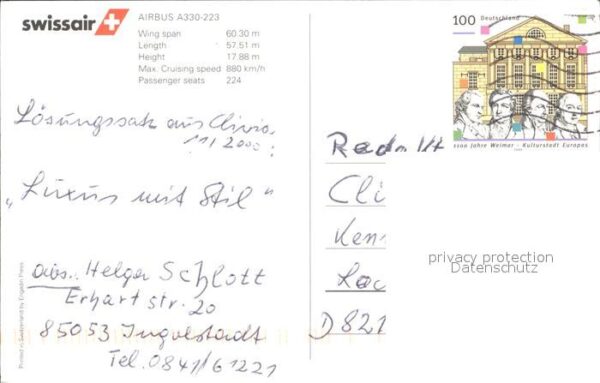 swissair
AIRBUS A330-223
Wing span 60.30 m
Length 57.51 m
Height 17.88 m
Max. Cruising speed 880 km/h
Passenger seats 224
Lösungssatz aus Clivia
11/2000:
„Luxus mit Stil"
abs.: Helga Schlott
Erhart str. 20
85053 Ingolstadt
Tel. 0841/61221
Printed in Switzerland by Engadin Press
100 Deutschland
1100 Jahre Weimar - Kulturstadt Europas
Cli
Ken
D 821
privacy protection
Datenschutz